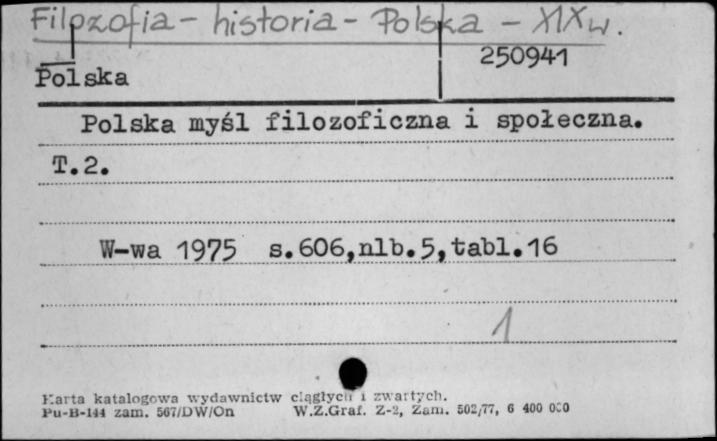 Filozofia - historia - Polska - XIX w.
250941
Polska
Polska myśl filozoficzna i społeczna.
T.2.
W-wa 1975 s.606,nlb.5,tabl.16
1
Karta katalogowa wydawnictw ciągłych i zwartych.
Pu-B-144 zam. 567/DW/On W.Z.Graf. Z-2, Zam. 502/77, 6 400 000